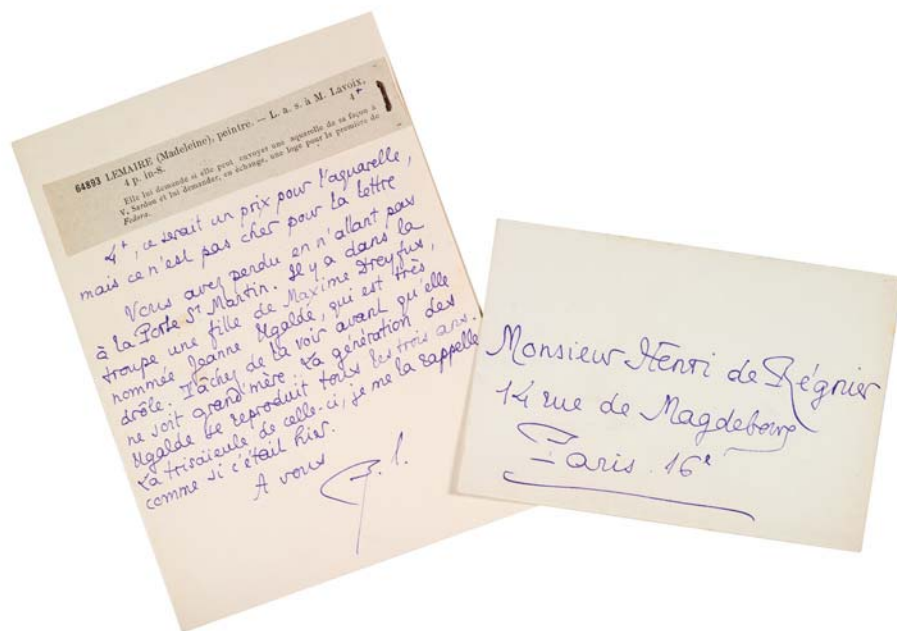 64893 LEMAIRE (Madeleine), peintre. — L. a. s. à M. Lavoix,
4 p. in-8. 4 +
Elle lui demande si elle peut envoyer une aquarelle de sa façon à
V. Sardou et lui demander, en échange, une loge pour la première de
Fedora.
4+, ce serait un prix pour l'aquarelle,
mais ce n'est pas cher pour la lettre
Vous avez perdu en n'allant pas
à la Porte St Martin. Il y a dans la
troupe une fille de Maxime Dreyfus,
nommée Jeanne Ugalde, qui est très
drôle. Tâchez de la voir avant qu'elle
ne soit grand'mère. La génération des
Ugalde se reproduit tous les trois ans.
La trisaïeule de celle-ci, je me la rappelle
comme si c'était hier.
A vous
P. l.
Monsieur Henri de Régnier
14 rue de Magdebourg
Paris. 16e